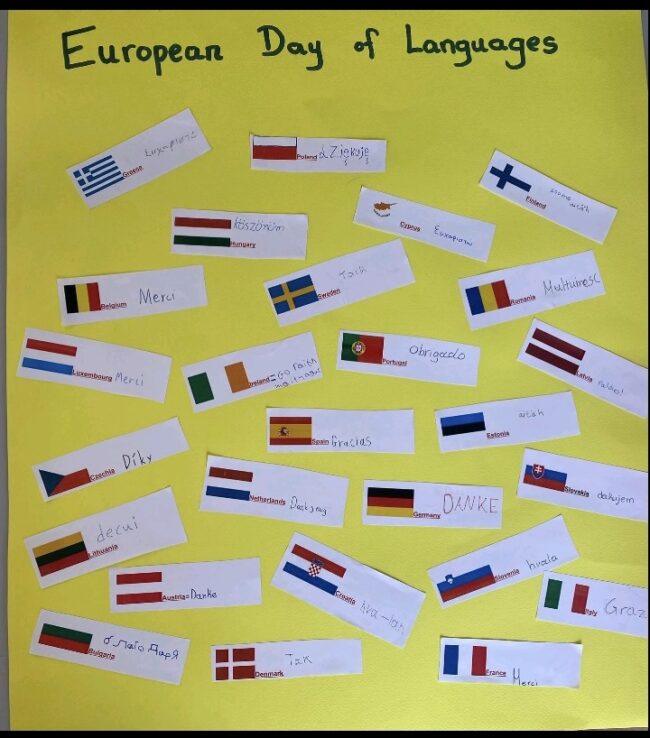 European Day of Languages
Greece
Poland dziękuję
Finland
Hungary Köszönöm
Cyprus Ευχαριστώ
Belgium Merci
Sweden Tack
Romania Multumesc
Luxembourg Merci
Ireland = Go raibh
Portugal Obrigado
Latvia paldies!
Spain Gracias
Estonia aitäh
Czechia Díky
Netherlands
Germany DANKE
Slovakia dakujem
Lithuania
Austria = Danke
Croatia hva-lah
Slovenia hvala
Italy Graz
Bulgaria
Denmark Tak
France Merci